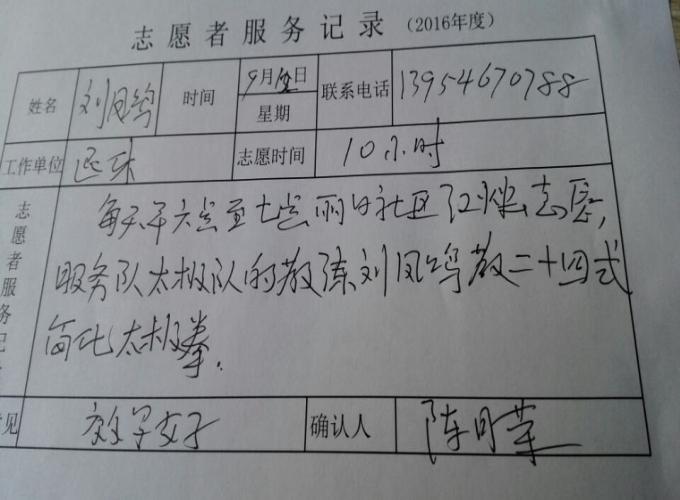 志愿者服务记录（2016年度）
姓名 刘凤鸣 时间 9月 日 联系电话 13954670788
星期
工作单位 退休 志愿时间 10小时
志愿者服务记
每天早六点至七点丽日社区红烛志愿,
服务队太极队的教练刘凤鸣教二十四式
简化太极拳.
见 教学友好 确认人 陈月荣